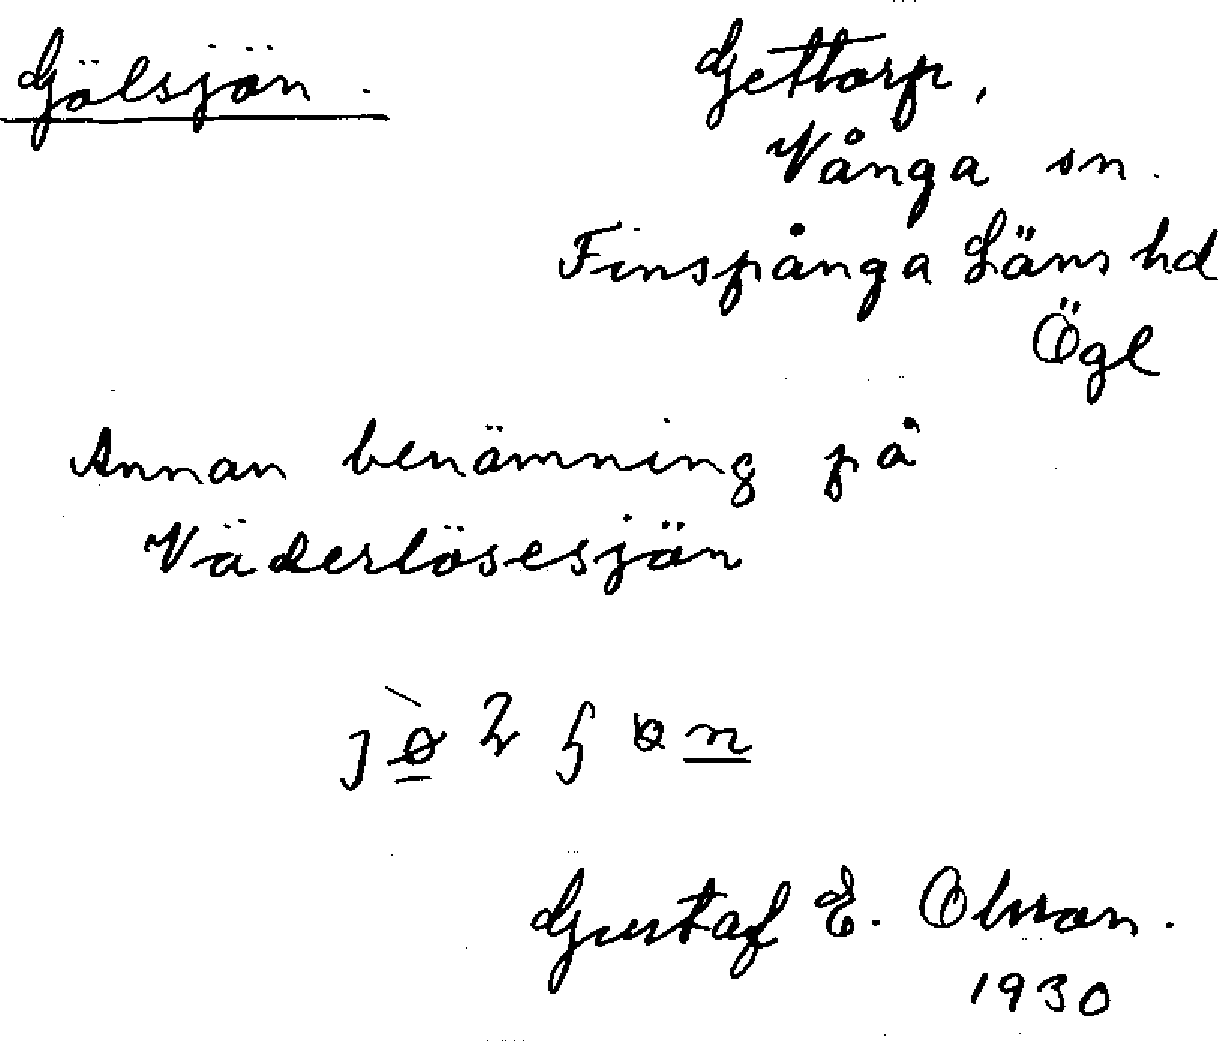 Gölsjön. Gettorp,
Vånga sn.
Finspånga Läns hd
Ögl
Annan benämning på
Väderlösesjön
Gustaf E. Olsson.
1930